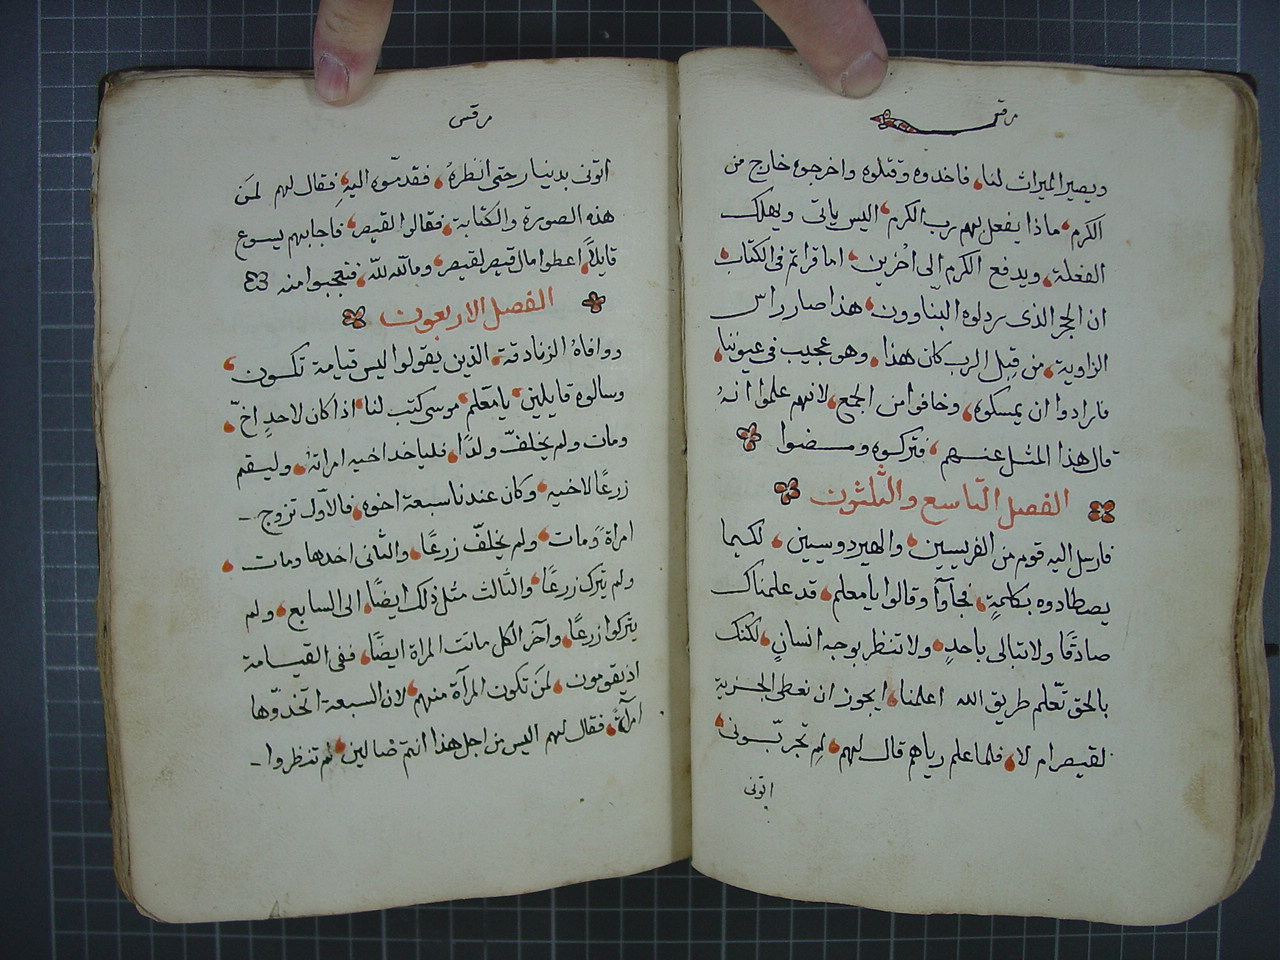 مرقس
ويصير الميراث لنا، فاخدوه وقتلوه واخرجوه خارج من
الكرم، ماذا يفعل بهم رب الكرم، اليس ياتي ويهلك
الفعلة، ويدفع الكرم الى اخرين، اما قراتم في الكتاب
ان الحجر الذى رذلوه البناوون، هذا صار راس
الزاوية، من قبل الرب كان هذا، وهو عجيب في عيوننا،
فارادوا ان يمسكوه، وخافوا من الجمع، لانهم علموا انه
قال هذا المثل عنهم، فتركوه ومضوا
الفصل التاسع والثلثون
فارسل اليه قوم من الفريسيين، والهيردوسيين، لكيما
يصطادوه بكلمةٍ، فجآوآ وقالوا يا معلم، قد علمناك
صادقًا ولا تبالى باحدٍ، ولا تنظر بوجه انسانٍ، لكنك
بالحق تعّلم طريق الله اعلمنا، ايجوز ان نعطى الجزية
لقيصر ام لا، فلما علم رياهم قال لهم، لِم تجربّونى،
اتونى
مرقس
اتونى بدينار حتى انظرهُ، فقدموّه اليهِ، فقال لهم لمَن
هذه الصورة والكتابة، فقالوا لقيصر، فاجابهم يسوع
قايلاً، اعطوا مال قيصر لقيصر، وما لله لله، فتعجبوا منه
الفصل الاربعون
ووافاهُ الزنادقة، الذين يقولوا ليس قيامة تكون،
وسالوه قايلين، يا معلم، موسى كتب لنا، اذا كان لاحدٍ اخّ،
ومات ولم يخلفّ ولدًا، فلياخد اخيه امراتهُ، وليقم
زرعًا لاخيه، وكان عندنا سبعة اخوه، فالاول تزوج
امراة ومات، ولم يخلفّ زرعًا، والثانى اخدها ومات،
ولم يترك زرعًا، والثالث مثل ذلك ايضًا، الى السابع، ولم
يتركوا زرعًا، وآخر الكل ماتت المراة ايضًا، ففى القيامة
اذ يقومون، لمَن تكون المرآة منهم، لان السبعة اتخدوّها
امرآةً، فقال لهم اليس من اجل هذا انتم ضالين، لم تنظروا